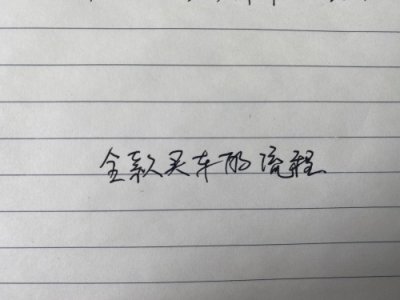 全款买车的流程